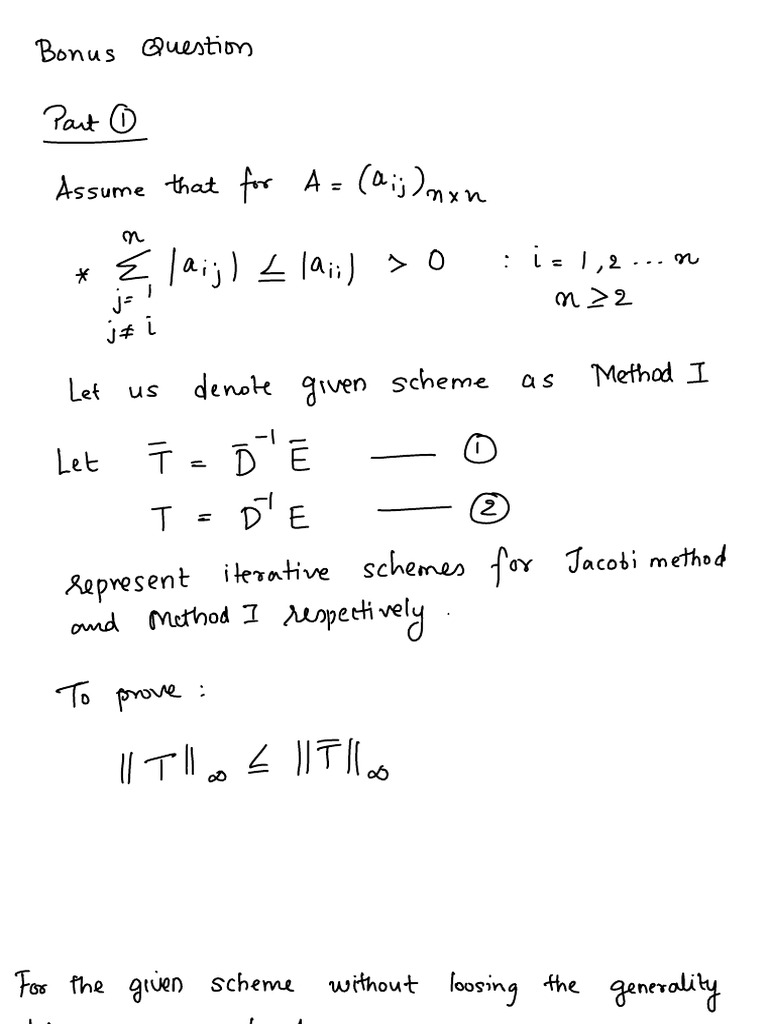 Bonus Question
Part ①
Assume that for A = (aij)n×n
* n∑j=1 j≠i |aij| ≤ |aii| > 0 : i = 1, 2 ... n
n ≥ 2
Let us denote given scheme as Method I
Let T̄ = D̄⁻¹ Ē —— ①
T = D⁻¹ E —— ②
represent iterative schemes for Jacobi method
and Method I respectively.
To prove :
||T||∞ ≤ ||T̄||∞
For the given scheme without loosing the generality